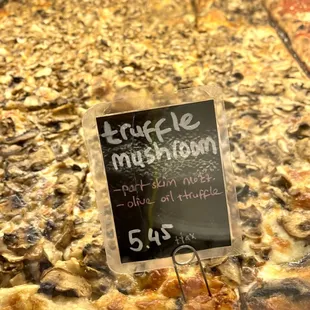 truffle
mushroom
-part skim mozz.
-olive oil + truffle
5.45 +tax